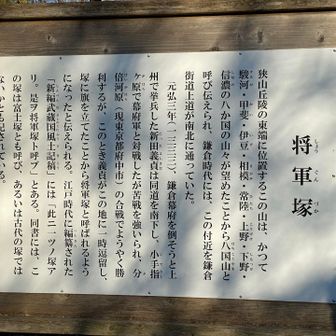 将軍塚
しょうぐんづか
狭山丘陵の東端に位置するこの山は、かつて
駿河・甲斐・伊豆・相模・常陸・上野・下野・
信濃の八か国の山々が望めたことから八国山と
呼び伝えられ、鎌倉時代には、この付近を鎌倉
街道上道が南北に通っていた。
元弘三年(一三三三)、鎌倉幕府を倒そうと上
州で挙兵した新田義貞は同道を南下し、小手指
ケ原で幕府軍と対戦したが苦戦を強いられ、分
倍河原(現東京都府中市)の合戦でようやく勝
利するが、このとき義貞がこの地に一時逗留し、
塚に旗を立てたことから将軍塚と呼ばれるよう
になったと伝えられる。江戸時代に編纂された
「新編武蔵国風土記稿」には「此ニ一ノ塚ア
リ。是ヲ将軍塚ト呼フ」とある。同書には、こ
の塚は富士塚とも呼び、あるいは古代の塚では
ないかとも記されている。